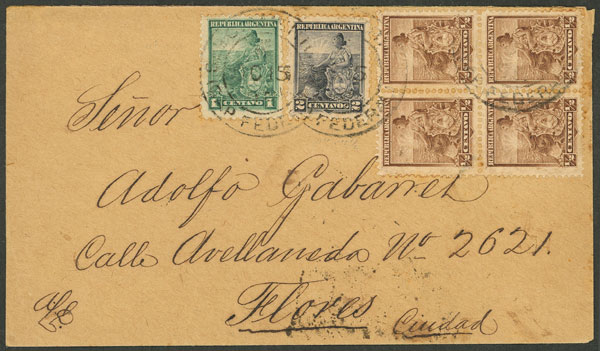 REPUBLICA ARGENTINA
1 CENTAVO 1
REPUBLICA ARGENTINA
2 CENTAVOS 2
REPUBLICA ARGENTINA
½ CENTAVO ½
REPUBLICA ARGENTINA
½ CENTAVO ½
REPUBLICA ARGENTINA
½ CENTAVO ½
REPUBLICA ARGENTINA
½ CENTAVO ½
Señor
Adolfo Gabarret
Calle Avellaneda No 2621.
Flores
Ciudad